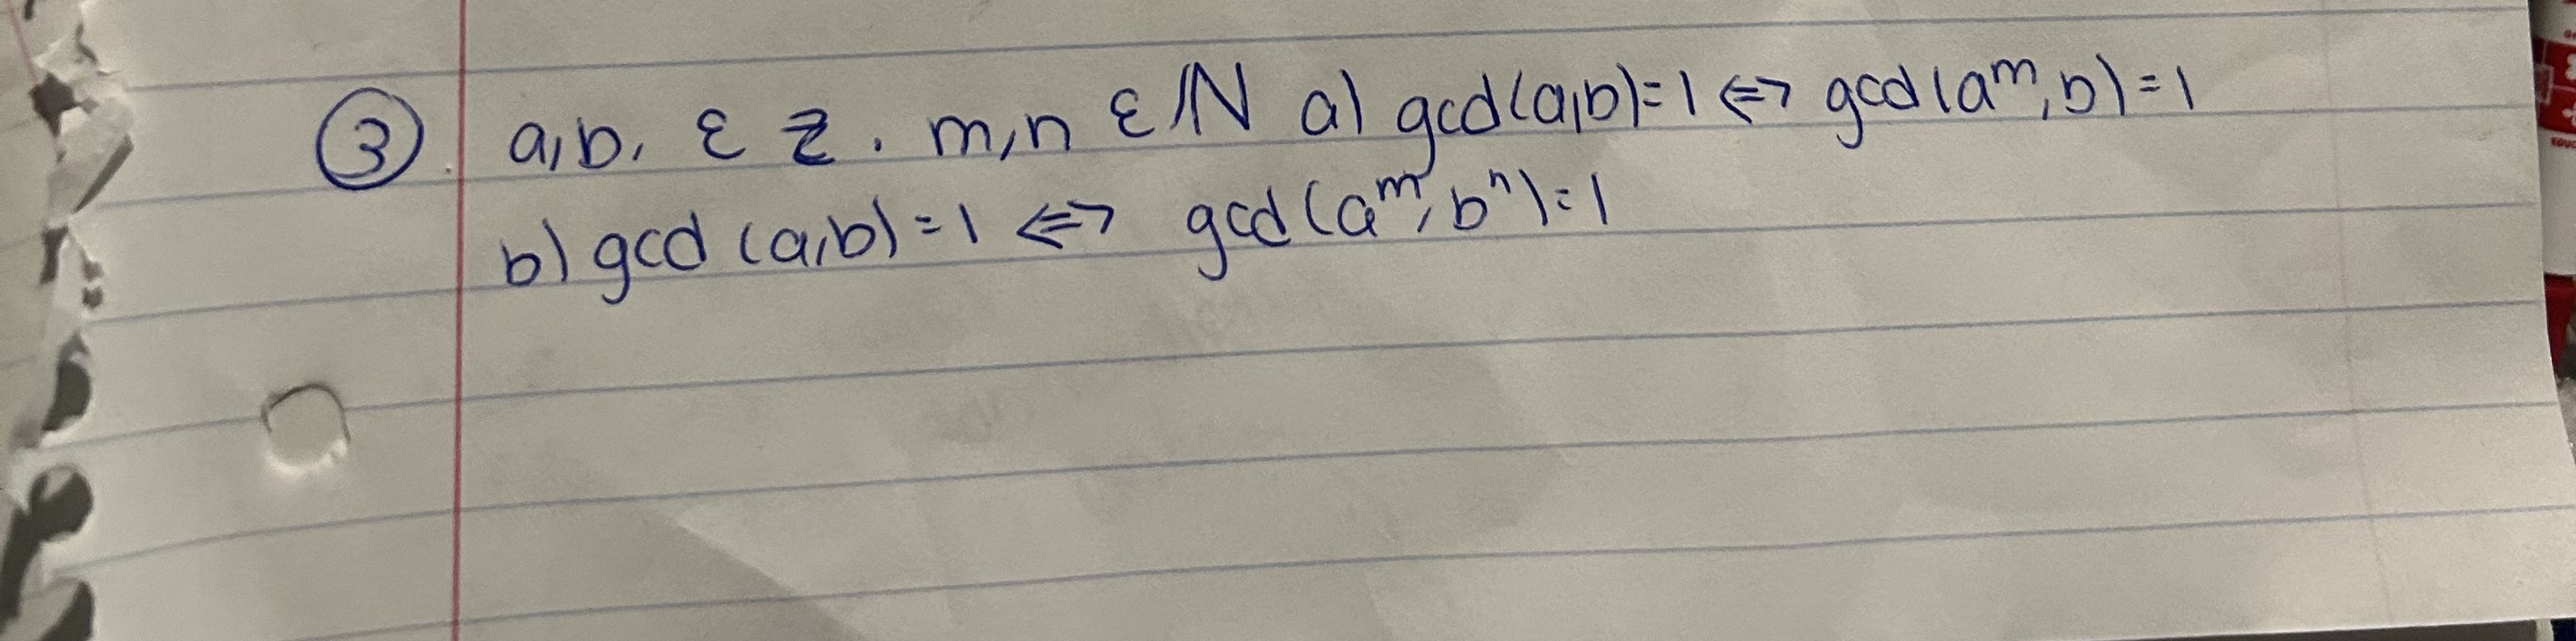 ③. a,b, ε ℤ. m,n ε ℕ a) gcd(a,b)=1 <=> gcd(a^m, b)=1
b) gcd (a,b)=1 <=> gcd(a^m, b^n)=1